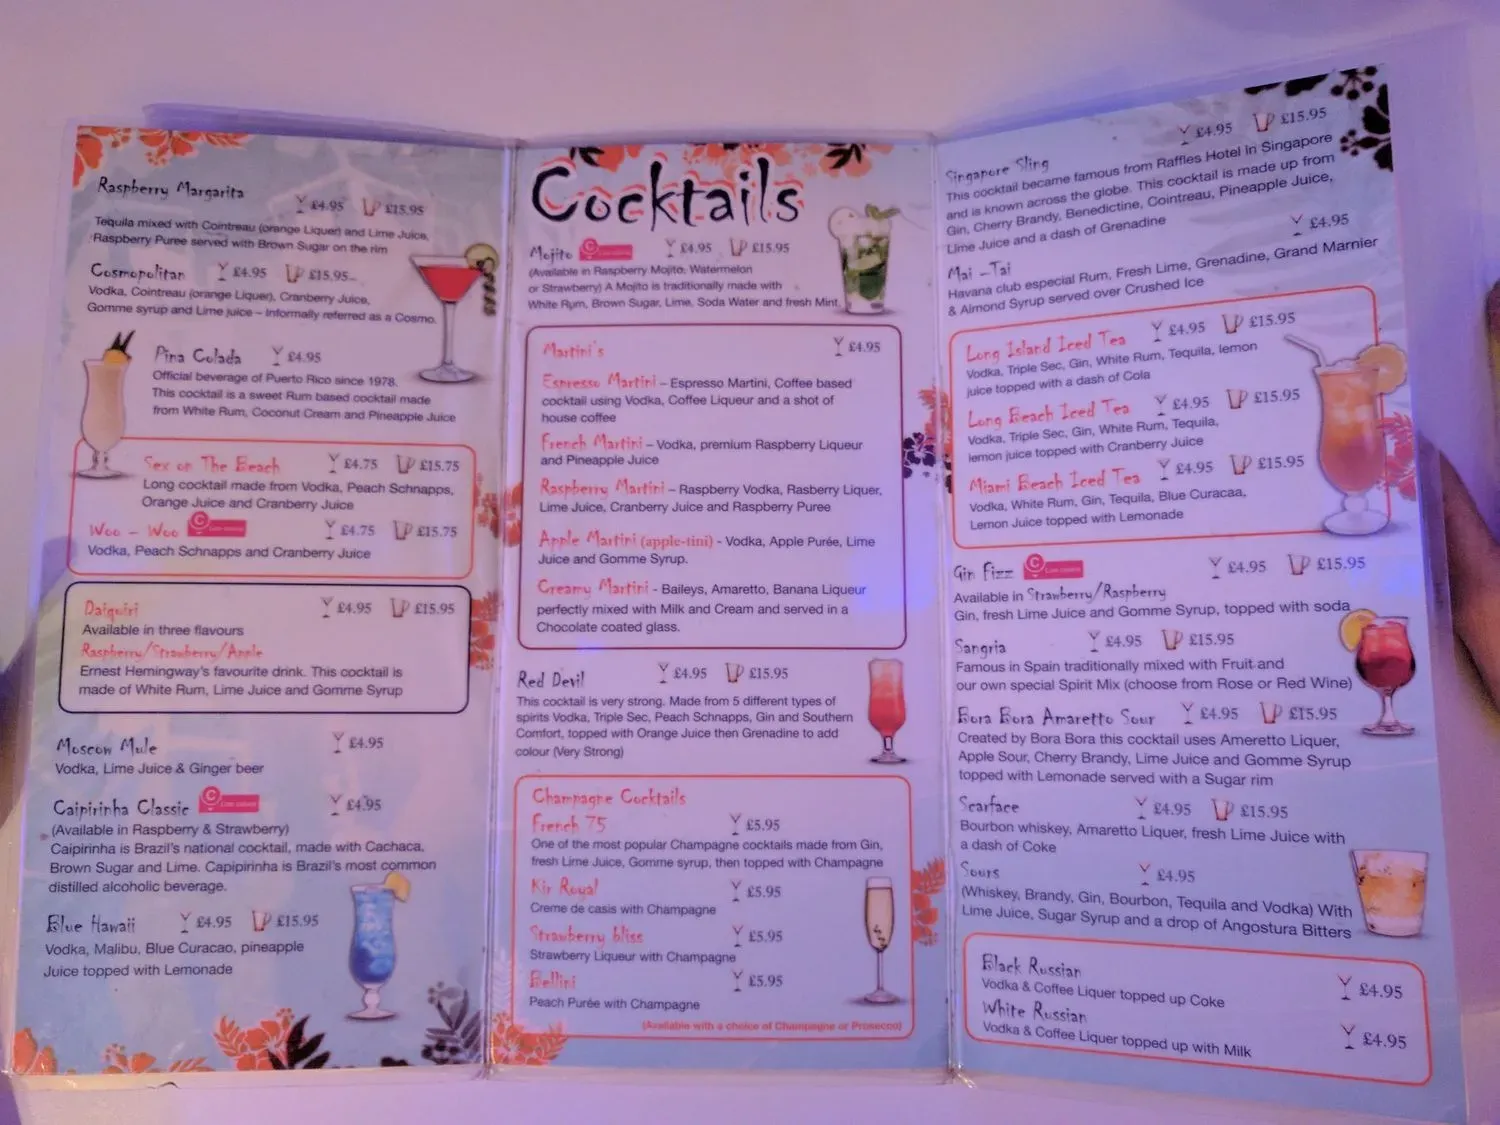 Raspberry Margarita £4.95 £15.95
Tequila mixed with Cointreau (orange Liquer) and Lime Juice,
Raspberry Puree served with Brown Sugar on the rim
Cosmopolitan £4.95 £15.95
Vodka, Cointreau (orange Liquer), Cranberry Juice,
Gomme syrup and Lime juice – Informally referred as a Cosmo.
Pina Colada £4.95
Official beverage of Puerto Rico since 1978.
This cocktail is a sweet Rum based cocktail made
from White Rum, Coconut Cream and Pineapple Juice
Sex on The Beach £4.75 £15.75
Long cocktail made from Vodka, Peach Schnapps,
Orange Juice and Cranberry Juice
Woo – Woo £4.75 £15.75
Vodka, Peach Schnapps and Cranberry Juice
Daiquiri £4.95 £15.95
Available in three flavours
Raspberry/Strawberry/Apple
Ernest Hemingway's favourite drink. This cocktail is
made of White Rum, Lime Juice and Gomme Syrup
Moscow Mule £4.95
Vodka, Lime Juice & Ginger beer
Caipirinha Classic £4.95
(Available in Raspberry & Strawberry)
Caipirinha is Brazil's national cocktail, made with Cachaca,
Brown Sugar and Lime. Capipirinha is Brazil's most common
distilled alcoholic beverage.
Blue Hawaii £4.95 £15.95
Vodka, Malibu, Blue Curacao, pineapple
Juice topped with Lemonade
Cocktails
Mojito £4.95 £15.95
(Available in Raspberry Mojito, Watermelon
or Strawberry) A Mojito is traditionally made with
White Rum, Brown Sugar, Lime, Soda Water and fresh Mint.
Martini's £4.95
Espresso Martini – Espresso Martini, Coffee based
cocktail using Vodka, Coffee Liqueur and a shot of
house coffee
French Martini – Vodka, premium Raspberry Liqueur
and Pineapple Juice
Raspberry Martini – Raspberry Vodka, Rasberry Liquer,
Lime Juice, Cranberry Juice and Raspberry Puree
Apple Martini (apple-tini) - Vodka, Apple Purée, Lime
Juice and Gomme Syrup.
Creamy Martini - Baileys, Amaretto, Banana Liqueur
perfectly mixed with Milk and Cream and served in a
Chocolate coated glass.
Red Devil £4.95 £15.95
This cocktail is very strong. Made from 5 different types of
spirits Vodka, Triple Sec, Peach Schnapps, Gin and Southern
Comfort, topped with Orange Juice then Grenadine to add
colour (Very Strong)
Champagne Cocktails
French 75 £5.95
One of the most popular Champagne cocktails made from Gin,
fresh Lime Juice, Gomme syrup, then topped with Champagne
Kir Royal £5.95
Creme de casis with Champagne
Strawberry bliss £5.95
Strawberry Liqueur with Champagne
Bellini £5.95
Peach Purée with Champagne
(Available with a choice of Champagne or Prosecco)
Singapore Sling £4.95 £15.95
This cocktail became famous from Raffles Hotel In Singapore
and is known across the globe. This cocktail is made up from
Gin, Cherry Brandy, Benedictine, Cointreau, Pineapple Juice,
Lime Juice and a dash of Grenadine
Mai –Tai £4.95
Havana club especial Rum, Fresh Lime, Grenadine, Grand Marnier
& Almond Syrup served over Crushed Ice
Long Island Iced Tea £4.95 £15.95
Vodka, Triple Sec, Gin, White Rum, Tequila, lemon
juice topped with a dash of Cola
Long Beach Iced Tea £4.95 £15.95
Vodka, Triple Sec, Gin, White Rum, Tequila,
lemon juice topped with Cranberry Juice
Miami Beach Iced Tea £4.95 £15.95
Vodka, White Rum, Gin, Tequila, Blue Curacaa,
Lemon Juice topped with Lemonade
Gin Fizz £4.95 £15.95
Available in Strawberry/Raspberry
Gin, fresh Lime Juice and Gomme Syrup, topped with soda
Sangria £4.95 £15.95
Famous in Spain traditionally mixed with Fruit and
our own special Spirit Mix (choose from Rose or Red Wine)
Bora Bora Amaretto Sour £4.95 £15.95
Created by Bora Bora this cocktail uses Ameretto Liquer,
Apple Sour, Cherry Brandy, Lime Juice and Gomme Syrup
topped with Lemonade served with a Sugar rim
Scarface £4.95 £15.95
Bourbon whiskey, Amaretto Liquer, fresh Lime Juice with
a dash of Coke
Sours £4.95
(Whiskey, Brandy, Gin, Bourbon, Tequila and Vodka) With
Lime Juice, Sugar Syrup and a drop of Angostura Bitters
Black Russian £4.95
Vodka & Coffee Liquer topped up Coke
White Russian £4.95
Vodka & Coffee Liquer topped up with Milk